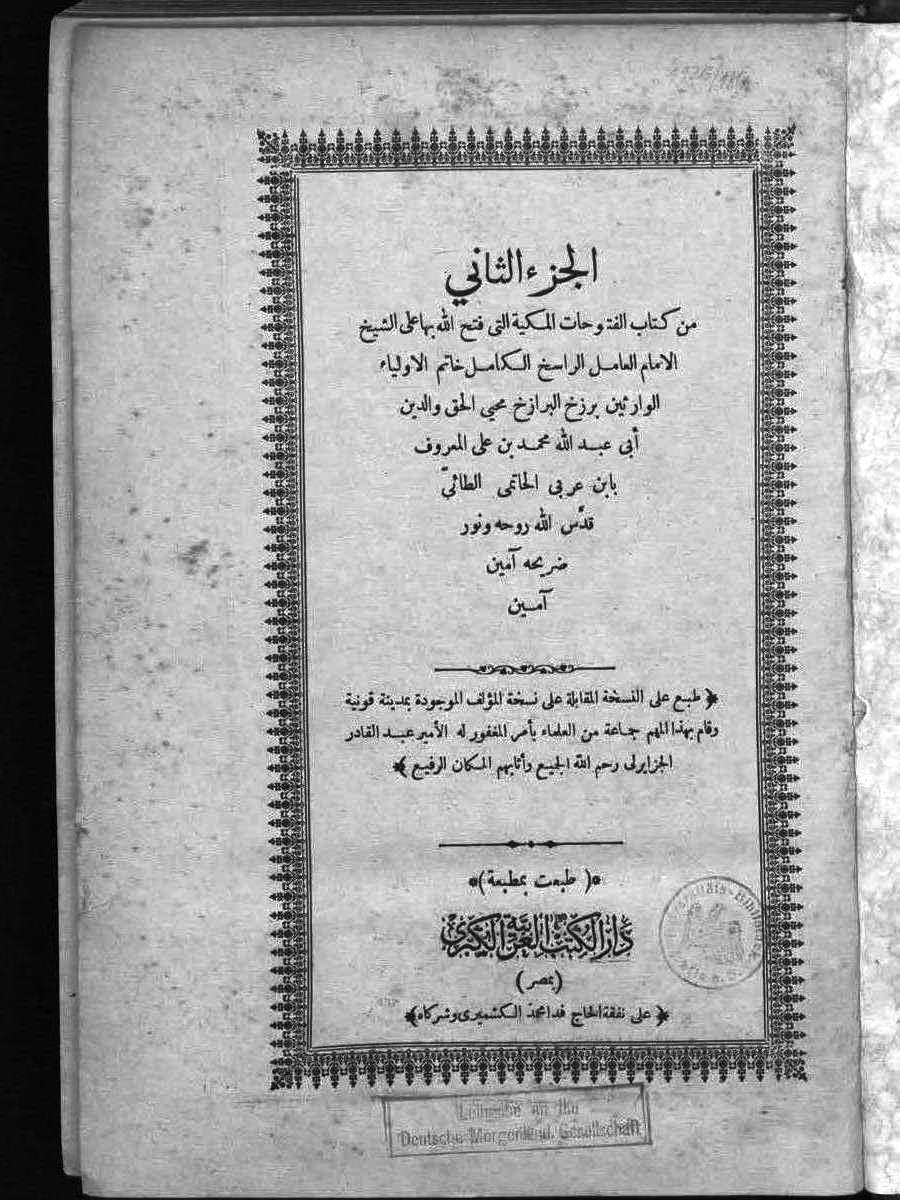 الجزء الثاني
من كتاب الفتوحات المكية التي فتح الله بها على الشيخ
الامام العامل الراسخ الكامل خاتم الاولياء
الوارثين برزخ البرازخ محيي الحق والدين
أبي عبد الله محمد بن على المعروف
بابن عربي الحاتمى الطائيّ
قدّس الله روحه ونور
ضريحه آمين
آمين
﴿ طبع على النسخة المقابلة على نسخة المؤلف الموجودة بمدينة قونية
وقام بهذا المهم جماعة من العلماء بأمر المغفور له الأمير عبد القادر
الجزايرلى رحم الله الجميع وأثابهم المكان الرفيع ﴾
*( طبعت بمطبعة )*
دار الكتب العربية الكبرى
( بمصر )
﴿ على نفقة الحاج فدا محمد الكشميرى وشركاه ﴾
Leihgabe an die
Deutsche Morgenländ. Gesellschaft